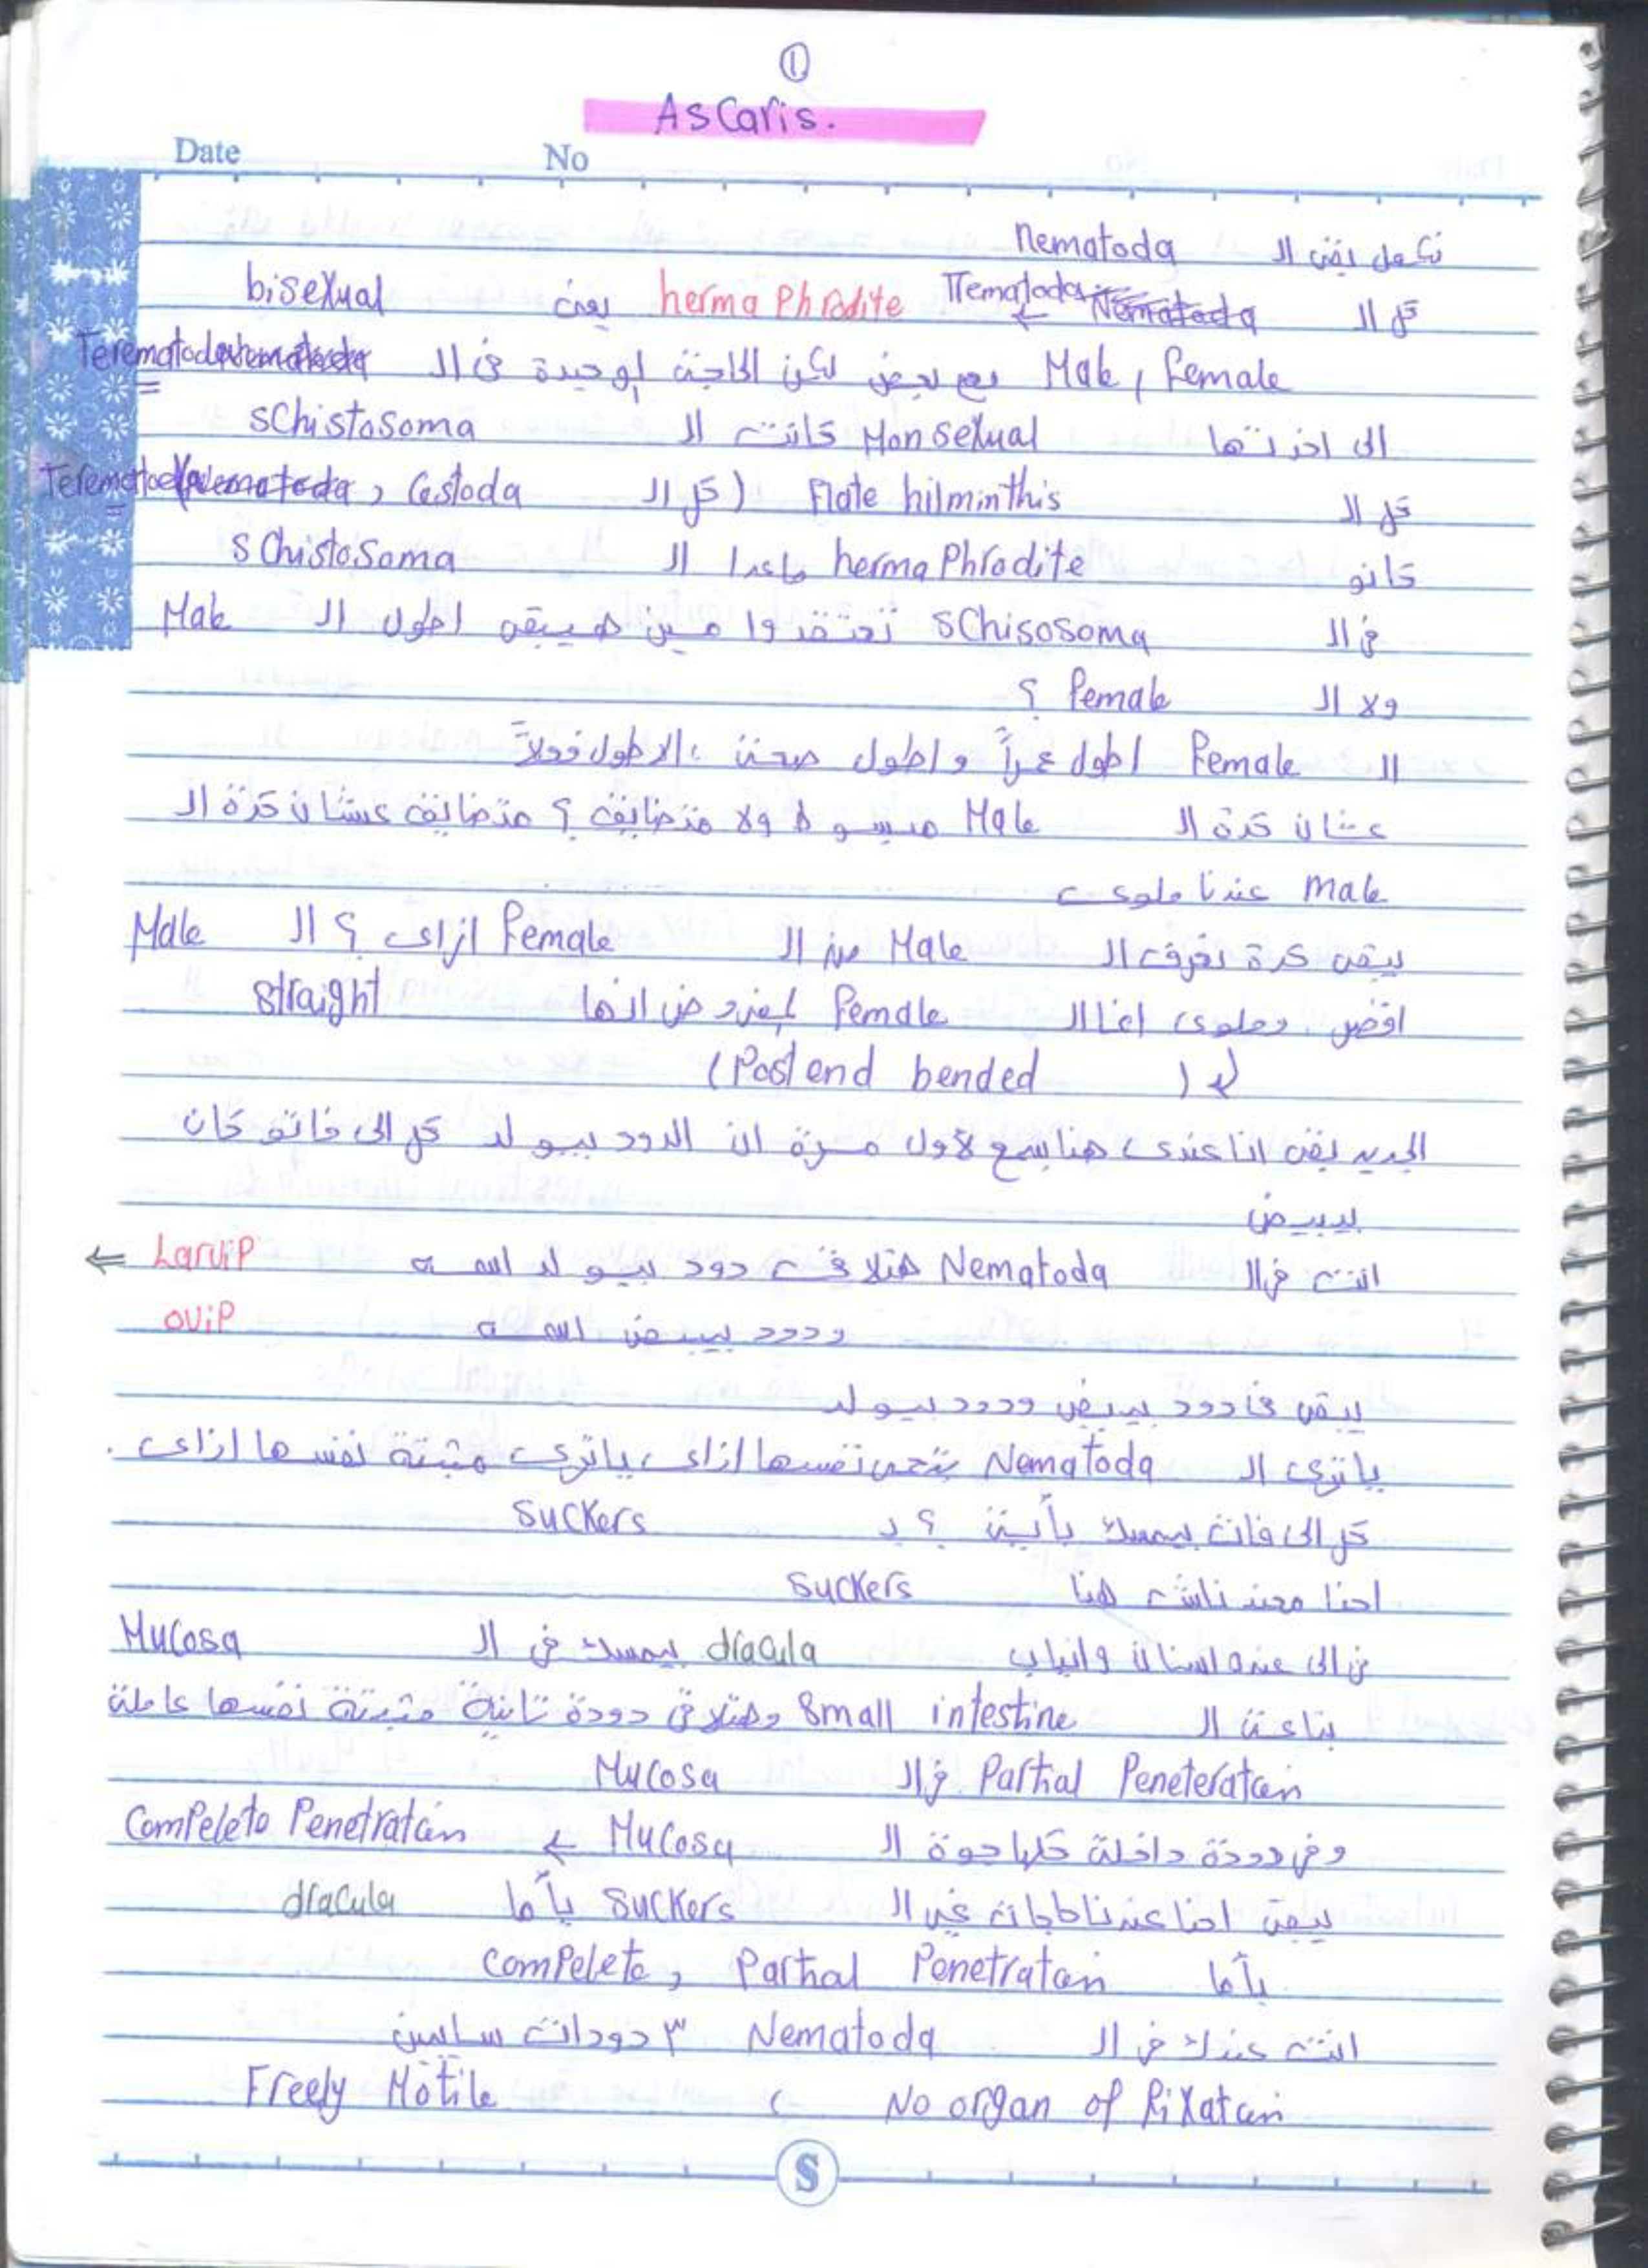 ①
Ascaris.
Date No
نكمل بقى ال nematoda
كل ال Trematoda ← Nematoda hermaphrodite يعنى bisexual
Male, female مع بعض لكن الحاجة لوحيدة فى ال Terematoda
الى اخدتها Monsexual كانت ال schistosoma
كل ال Flate hilminthis (كل ال Terematoda, Cestoda
كانو hermaphrodite ماعدا ال schistosoma
فى ال schisosoma تعتقدوا مين هيبقى اطول ال Male
ولا ال female ؟
ال Female اطول عمراً و اطول صحة، الاطول
عشان كدة ال Male مبسوط ولا متضايق ؟ متضايق عشان كدة ال
male عندنا ملوى
يبقى كدة نعرف ال Male من ال female ازاى ؟ ال Male
اقصر وملوى اما ال female المفروض انها straight
(Post end bended)
الجديد بقى انا عندى هنا نسمع لاول مرة ان الدود بيولد كل الى فاتو كان
بيبيض
انت فى ال Nematoda هتلاقى دود بيولد اسمه Larvip ←
ودود بيبيض اسمه ovip
يبقى فى دود بيبيض ودود بيولد
ياترى ال Nematoda بتحمى نفسها ازاى، ياترى مثبتة نفسها ازاى.
كل الى فات بيمسك بأية ؟ بـ suckers
احنا معندناش هنا suckers
فى الى عنده اسنان وانياب dracula بيمسك فى ال Mucosa
بتاعة ال small intestine وهتلاقى دودة تانية مثبتة نفسها عاملة
Partial Peneteratoin فى ال Mucosa
وفى دودة داخلة كلها جوة ال Mucosa ← Compelete Penetratoin
يبقى احنا عندنا حاجات غير ال suckers يأما dracula
يأما compelete, Partial Penetratoin
انت عندك فى ال Nematoda ٣ دودات سايبين
No organ of fixatoin ، Freely Motile
S